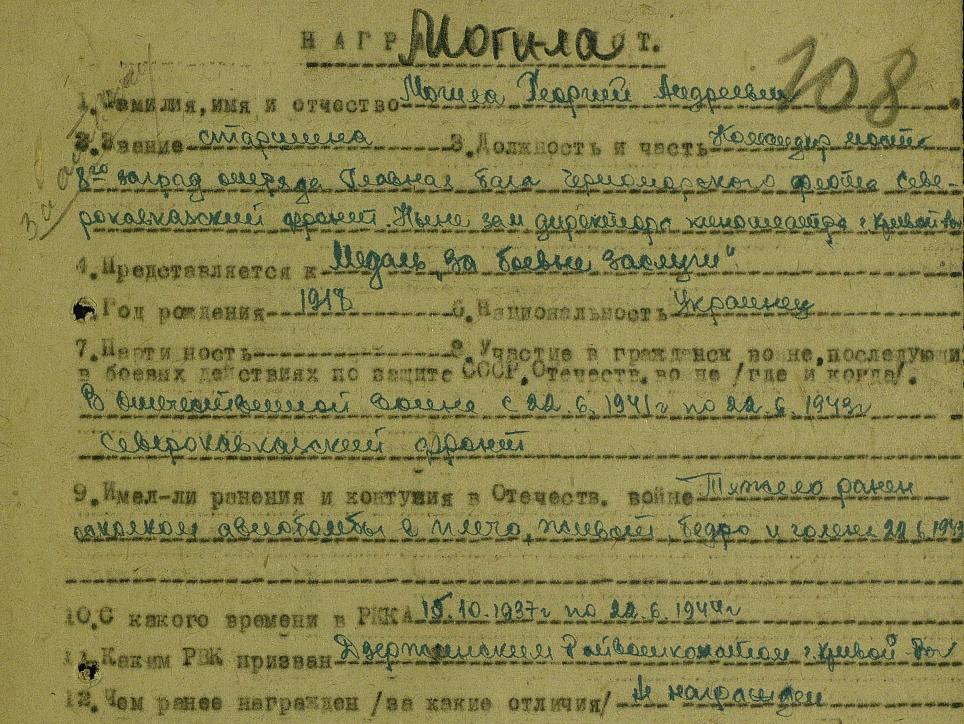 НАГР Могила Т.
108
1. Фамилия, имя и отчество Могила Георгий Андреевич
2. Звание старшина 3. Должность и часть Командир
8го заград отряда Главная база Черноморского флота Севе-
рокавказский фронт. Ныне зам директора кинотеатра г. Кривой Рог
4. Представляется к Медаль "За боевые заслуги"
Год рождения 1918 6. Национальность Украинец
7. Парти ность 8. Участие в гражданск во не, последующи
в боевых действиях по защите СССР, Отечеств. во не /где и когда/.
В отечественной войне с 22.6.1941г по 22.6.1943г
Северокавказский фронт
9. Имел-ли ранения и контузия в Отечеств. войне Тяжело ранен
осколком авиабомбы в плечо, живот, бедро и голень 22.6.1943
10. С какого времени в РККА 15.10.1937г по 22.6.1944г
11. Каким РВК призван Дзержинским Райвоенкоматом г. Кривой Рог
12. Чем ранее награжден /за какие отличия/ Не награжден